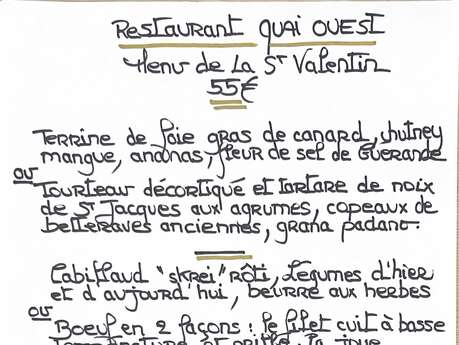 Restaurant Quai Ouest
Menu de La St Valentin
55€
Terrine de foie gras de canard, chutney
mangue, ananas, fleur de sel de Guérande
ou
Tourteau décortiqué et tartare de noix
de St Jacques aux agrumes, copeaux de
betteraves anciennes, grana padano.
Cabillaud "skrei" rôti, légumes d'hier
et d'aujourd'hui, beurre aux herbes
ou
Boeuf en 2 façons : le filet cuit à basse
température et grillé, la joue